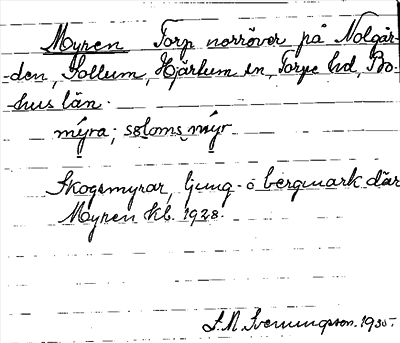 Myren Torp norröver på Nolgår-
den, Sollum, Hjärtum sn, Torpe hd, Bo-
hus län.
mýra; soloms mýr
Skogsmyrar, ljung- o bergmark där
Myren kb. 1928.
S. M. Svenungsson. 1930.